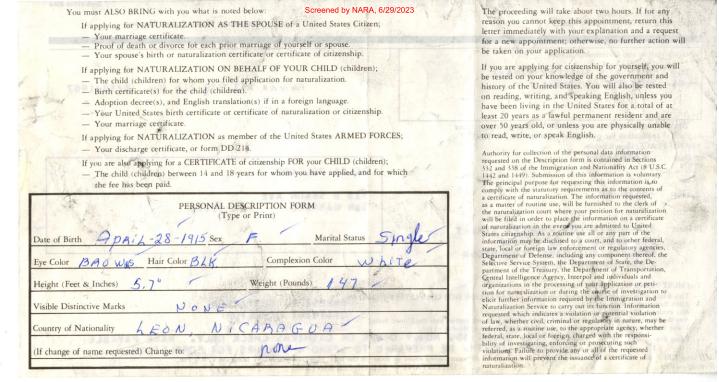 You must ALSO BRING with you what is noted below:
If applying for NATURALIZATION AS THE SPOUSE of a United States Citizen;
— Your marriage certificate.
— Proof of death or divorce for each prior marriage of yourself or spouse.
— Your spouse's birth or naturalization certificate or certificate of citizenship.
If applying for NATURALIZATION ON BEHALF OF YOUR CHILD (children);
— The child (children) for whom you filed application for naturalization.
— Birth certificate(s) for the child (children).
— Adoption decree(s), and English translation(s) if in a foreign language.
— Your United States birth certificate or certificate of naturalization or citizenship.
— Your marriage certificate.
If applying for NATURALIZATION as member of the United States ARMED FORCES;
— Your discharge certificate, or form DD 214.
If you are also applying for a CERTIFICATE of citizenship FOR your CHILD (children);
— The child (children) between 14 and 18 years for whom you have applied, and for which
the fee has been paid.
PERSONAL DESCRIPTION FORM
(Type or Print)
Date of Birth APRIL-28-1915 Sex F Marital Status Single
Eye Color BROWS Hair Color BLK Complexion Color White
Height (Feet & Inches) 5.7" Weight (Pounds) 147
Visible Distinctive Marks NONE
Country of Nationality LEON, NICARAGUA
(If change of name requested) Change to: none
Screened by NARA, 6/29/2023
The proceeding will take about two hours. If for any
reason you cannot keep this appointment, return this
letter immediately with your explanation and a request
for a new appointment; otherwise, no further action will
be taken on your application.
If you are applying for citizenship for yourself, you will
be tested on your knowledge of the government and
history of the United States. You will also be tested
on reading, writing, and speaking English, unless you
have been living in the United States for a total of at
least 20 years as a lawful permanent resident and are
over 50 years old, or unless you are physically unable
to read, write, or speak English.
Authority for collection of the personal data information
requested on the Description form is contained in Sections
332 and 338 of the Immigration and Nationality Act (8 U.S.C.
1442 and 1449). Submission of this information is voluntary.
The principal purpose for requesting this information is to
comply with the statutory requirements as to the contents of
a certificate of naturalization. The information requested,
as a matter of routine use, will be furnished to the clerk of
the naturalization court where your petition for naturalization
will be filed in order to place the information on a certificate
of naturalization in the event you are admitted to United
States citizenship. As a routine use all or any part of the
information may be disclosed to a court, and to other federal,
state, local or foreign law enforcement or regulatory agencies,
Department of Defense, including any component thereof, the
Selective Service System, the Department of State, the De-
partment of the Treasury, the Department of Transportation,
Central Intelligence Agency, Interpol and individuals and
organizations in the processing of your application or peti-
tion for naturalization or during the course of investigation to
elicit further information required by the Immigration and
Naturalization Service to carry out its function. Information
requested which indicates a violation or potential violation
of law, whether civil, criminal or regulatory in nature, may be
referred, as a routine use, to the appropriate agency, whether
federal, state, local or foreign, charged with the responsi-
bility of investigating, enforcing or prosecuting such
violations. Failure to provide any or all of the requested
information will prevent the issuance of a certificate of
naturalization.